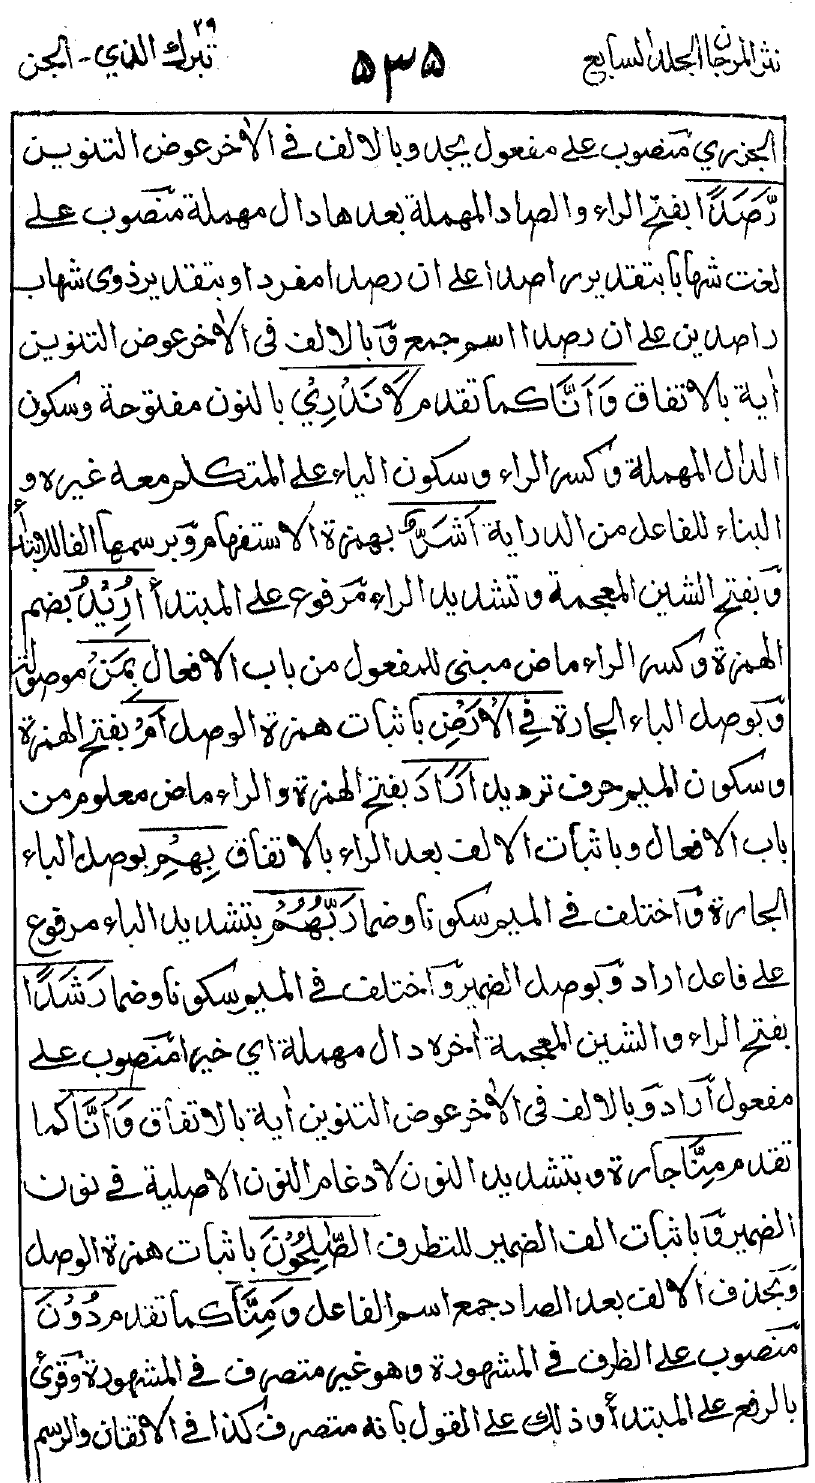 نثر المرجان المجلد السابع
۵۳۵
تبرك الذي ۲۹ - الجن
الجزري منصوب على مفعول يجد وبالالف في الآخر عوض التنوين
رَّصَدًا بفتح الراء والصاد المهملة بعدها دال مهملة منصوب على
نعت شهابا بتقدير راصدا على ان رصدا مفرد او بتقدير ذوى شهاب
راصدين على ان رصدا اسم جمع وبالالف في الآخر عوض التنوين
آية بالاتفاق وَاَنَّا كما تقدم لَا نَدْرِيْ بالنون مفتوحة وسكون
الدال المهملة وكسر الراء وسكون الياء على المتكلم معه غيره و
البناء للفاعل من الدراية اَشَرٌّ بهمزة الاستفهام وبرسمها الفا للابتداء
وبفتح الشين المعجمة وتشديد الراء مرفوع على المبتدأ اُرِيْدَ بضم
الهمزة وكسر الراء ماض مبني للمفعول من باب الافعال بِمَنْ موصولة
وبوصل الباء الجارة فِي الْاَرْضِ باثبات همزة الوصل اَمْ بفتح الهمزة
وسكون الميم حرف ترديد اَرَادَ بفتح الهمزة والراء ماض معلوم من
باب الافعال وباثبات الالف بعد الراء بالاتفاق بِهِمْ بوصل الباء
الجارة واختلف في الميم سكونا وضما رَبُّهُمْ بتشديد الباء مرفوع
على فاعل اراد وبوصل الضمير واختلف في الميم سكونا وضما رَشَدًا
بفتح الراء والشين المعجمة آخره دال مهملة اي خيرا منصوب على
مفعول أراد وبالالف في الآخر عوض التنوين آية بالاتفاق وَاَنَّا كما
تقدم مِنَّا جارة وبتشديد النون لادغام النون الاصلية في نون
الضمير وباثبات الف الضمير للتطرف الصّٰلِحُوْنَ باثبات همزة الوصل
وبحذف الالف بعد الصاد جمع اسم الفاعل وَمِنَّا كما تقدم دُوْنَ
منصوب على الظرف في المشهورة وهو غير متصرف في المشهورة وقرئ
بالرفع على المبتدأ وذلك على القول بانه متصرف كذا في الاتقان والرسم